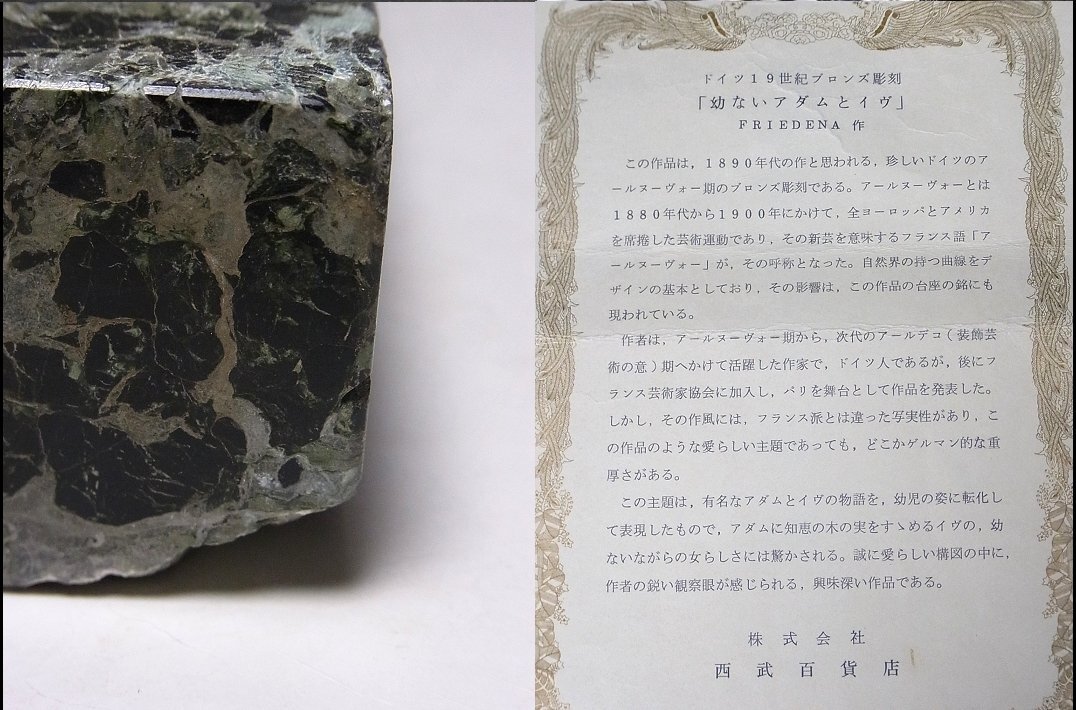 ドイツ19世紀ブロンズ彫刻
「幼ないアダムとイヴ」
FRIEDENA 作
この作品は，1890年代の作と思われる，珍しいドイツのア
ールヌーヴォー期のブロンズ彫刻である。アールヌーヴォーとは
1880年代から1900年にかけて，全ヨーロッパとアメリカ
を席捲した芸術運動であり，その新芸を意味するフランス語「ア
ールヌーヴォー」が，その呼称となった。自然界の持つ曲線をデ
ザインの基本としており，その影響は，この作品の台座の銘にも
現われている。
作者は，アールヌーヴォー期から，次代のアールデコ（装飾芸
術の意）期へかけて活躍した作家で，ドイツ人であるが，後にフ
ランス芸術家協会に加入し，パリを舞台として作品を発表した。
しかし，その作風には，フランス派とは違った写実性があり，こ
の作品のような愛らしい主題であっても，どこかゲルマン的な重
厚さがある。
この主題は，有名なアダムとイヴの物語を，幼児の姿に転化し
て表現したもので，アダムに知恵の木の実をすゝめるイヴの，幼
ないながらの女らしさには驚かされる。誠に愛らしい構図の中に，
作者の鋭い観察眼が感じられる，興味深い作品である。
株式会社
西武百貨店